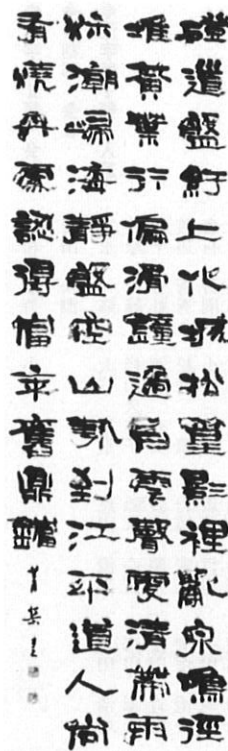 磴道盤紆上化城松篁影裡亂泉鳴徑
堆黃葉行偏滑鐘過白雲聲更清帶雨
秋潮歸海靜盤空山勢到江平道人尚
有燒丹處認得當年舊鼎鐺